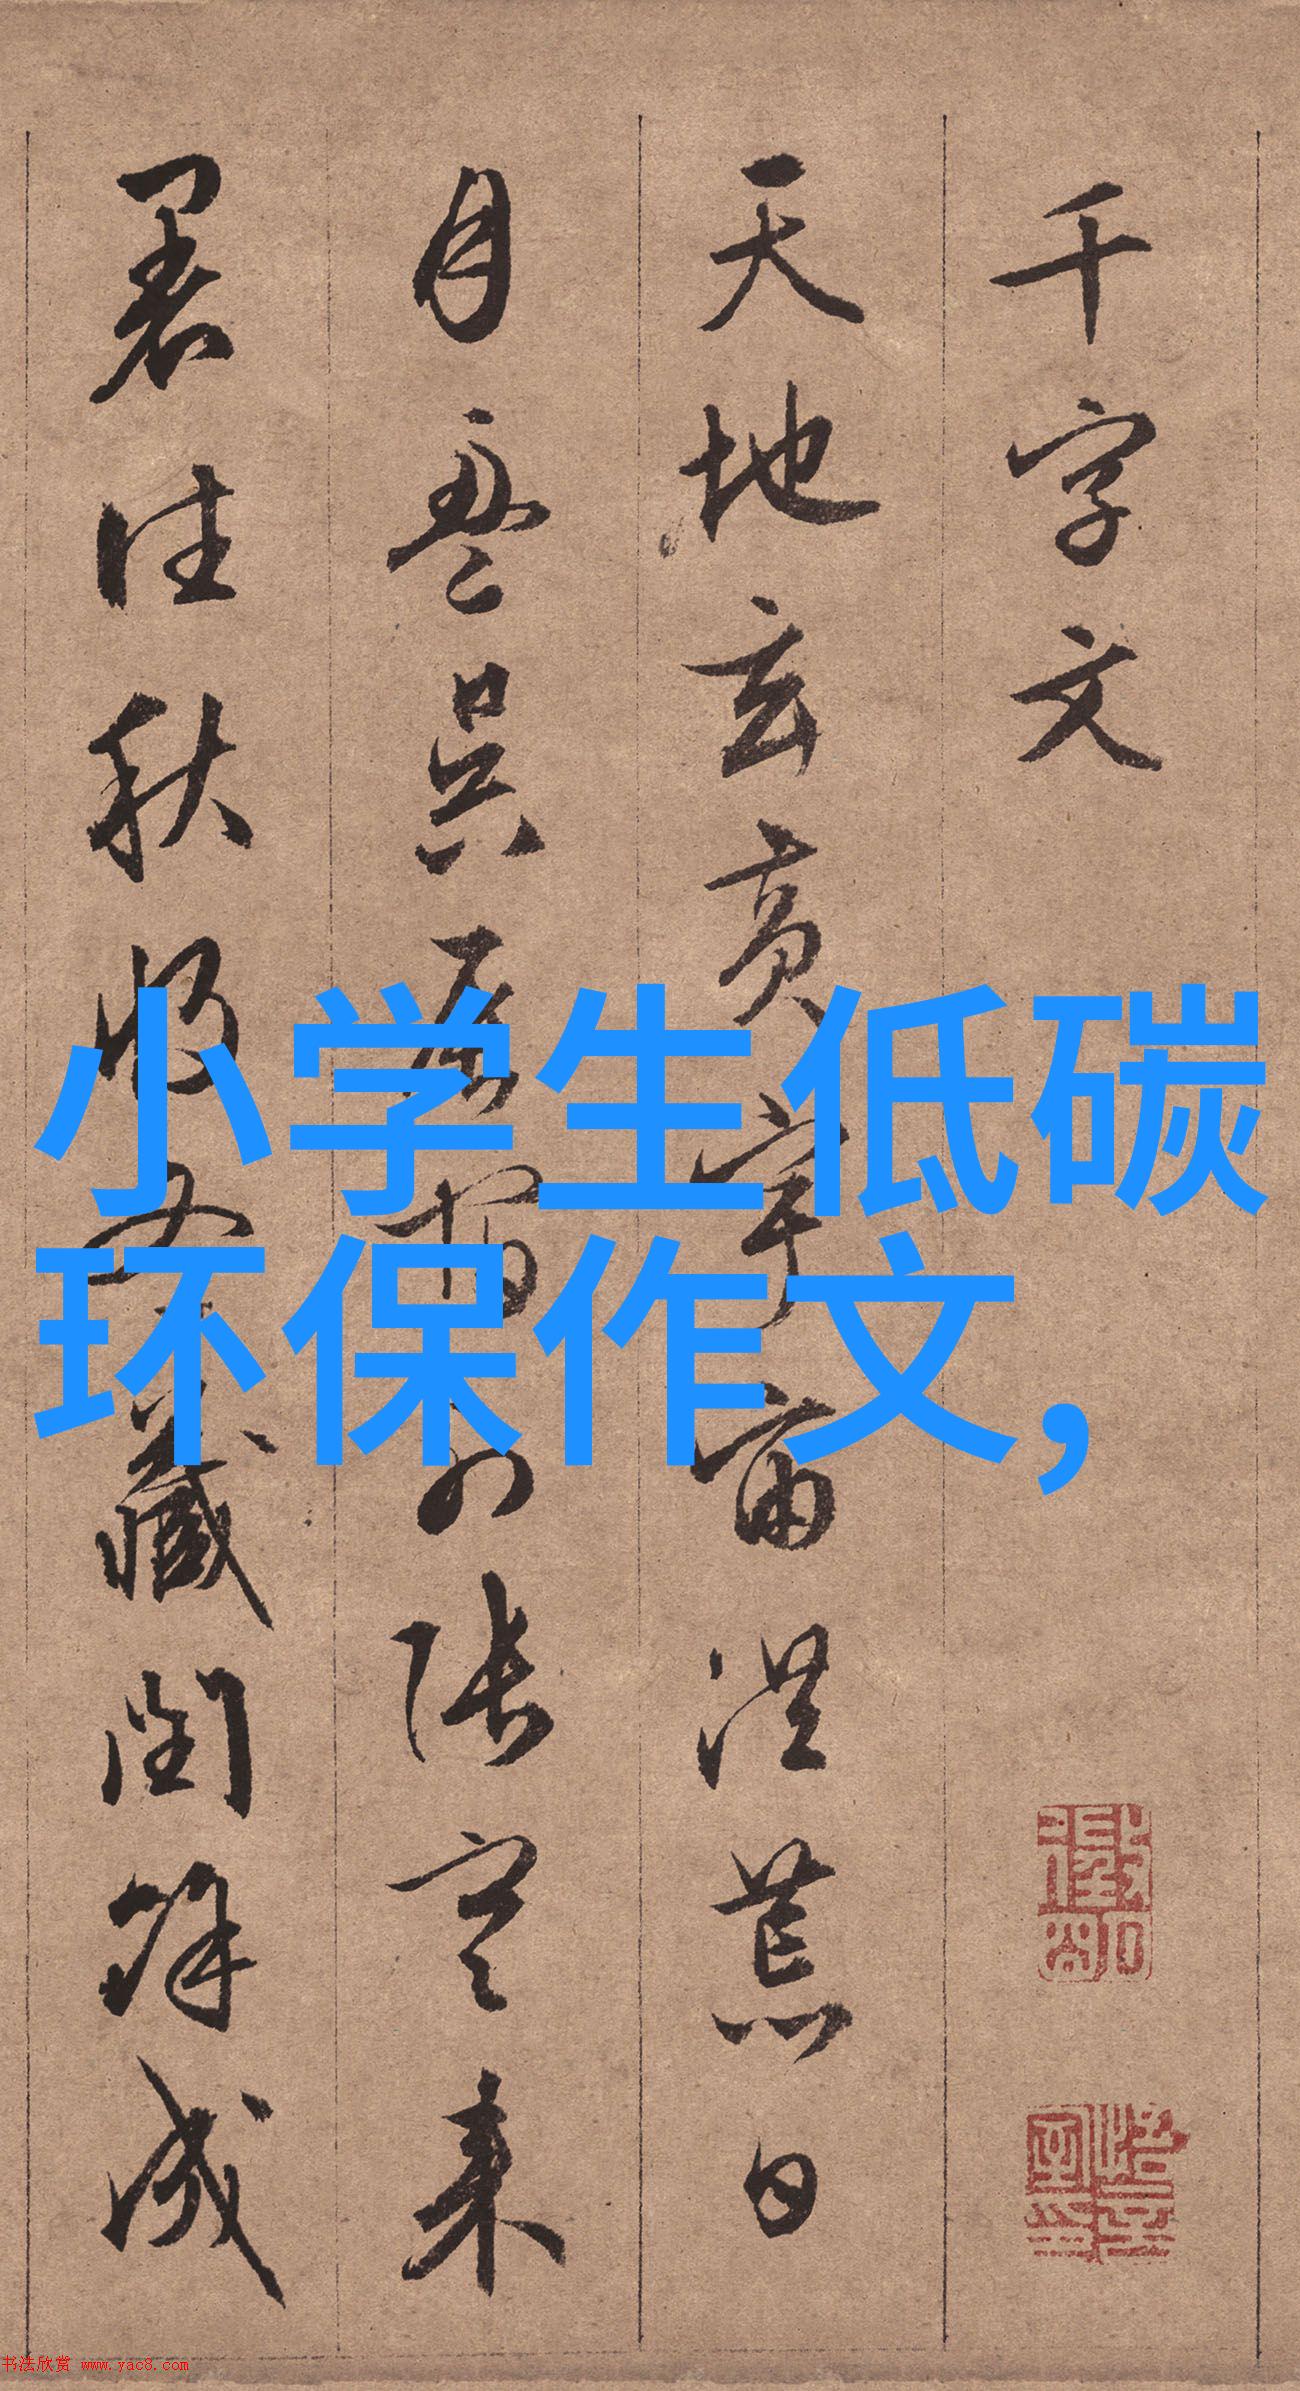 千字文
天地玄黄宇宙洪荒日
月盈昃辰宿列张寒来
暑往秋收冬藏闰余成
小学生低碳
环保作文，
书法欣赏 www.yac8.com